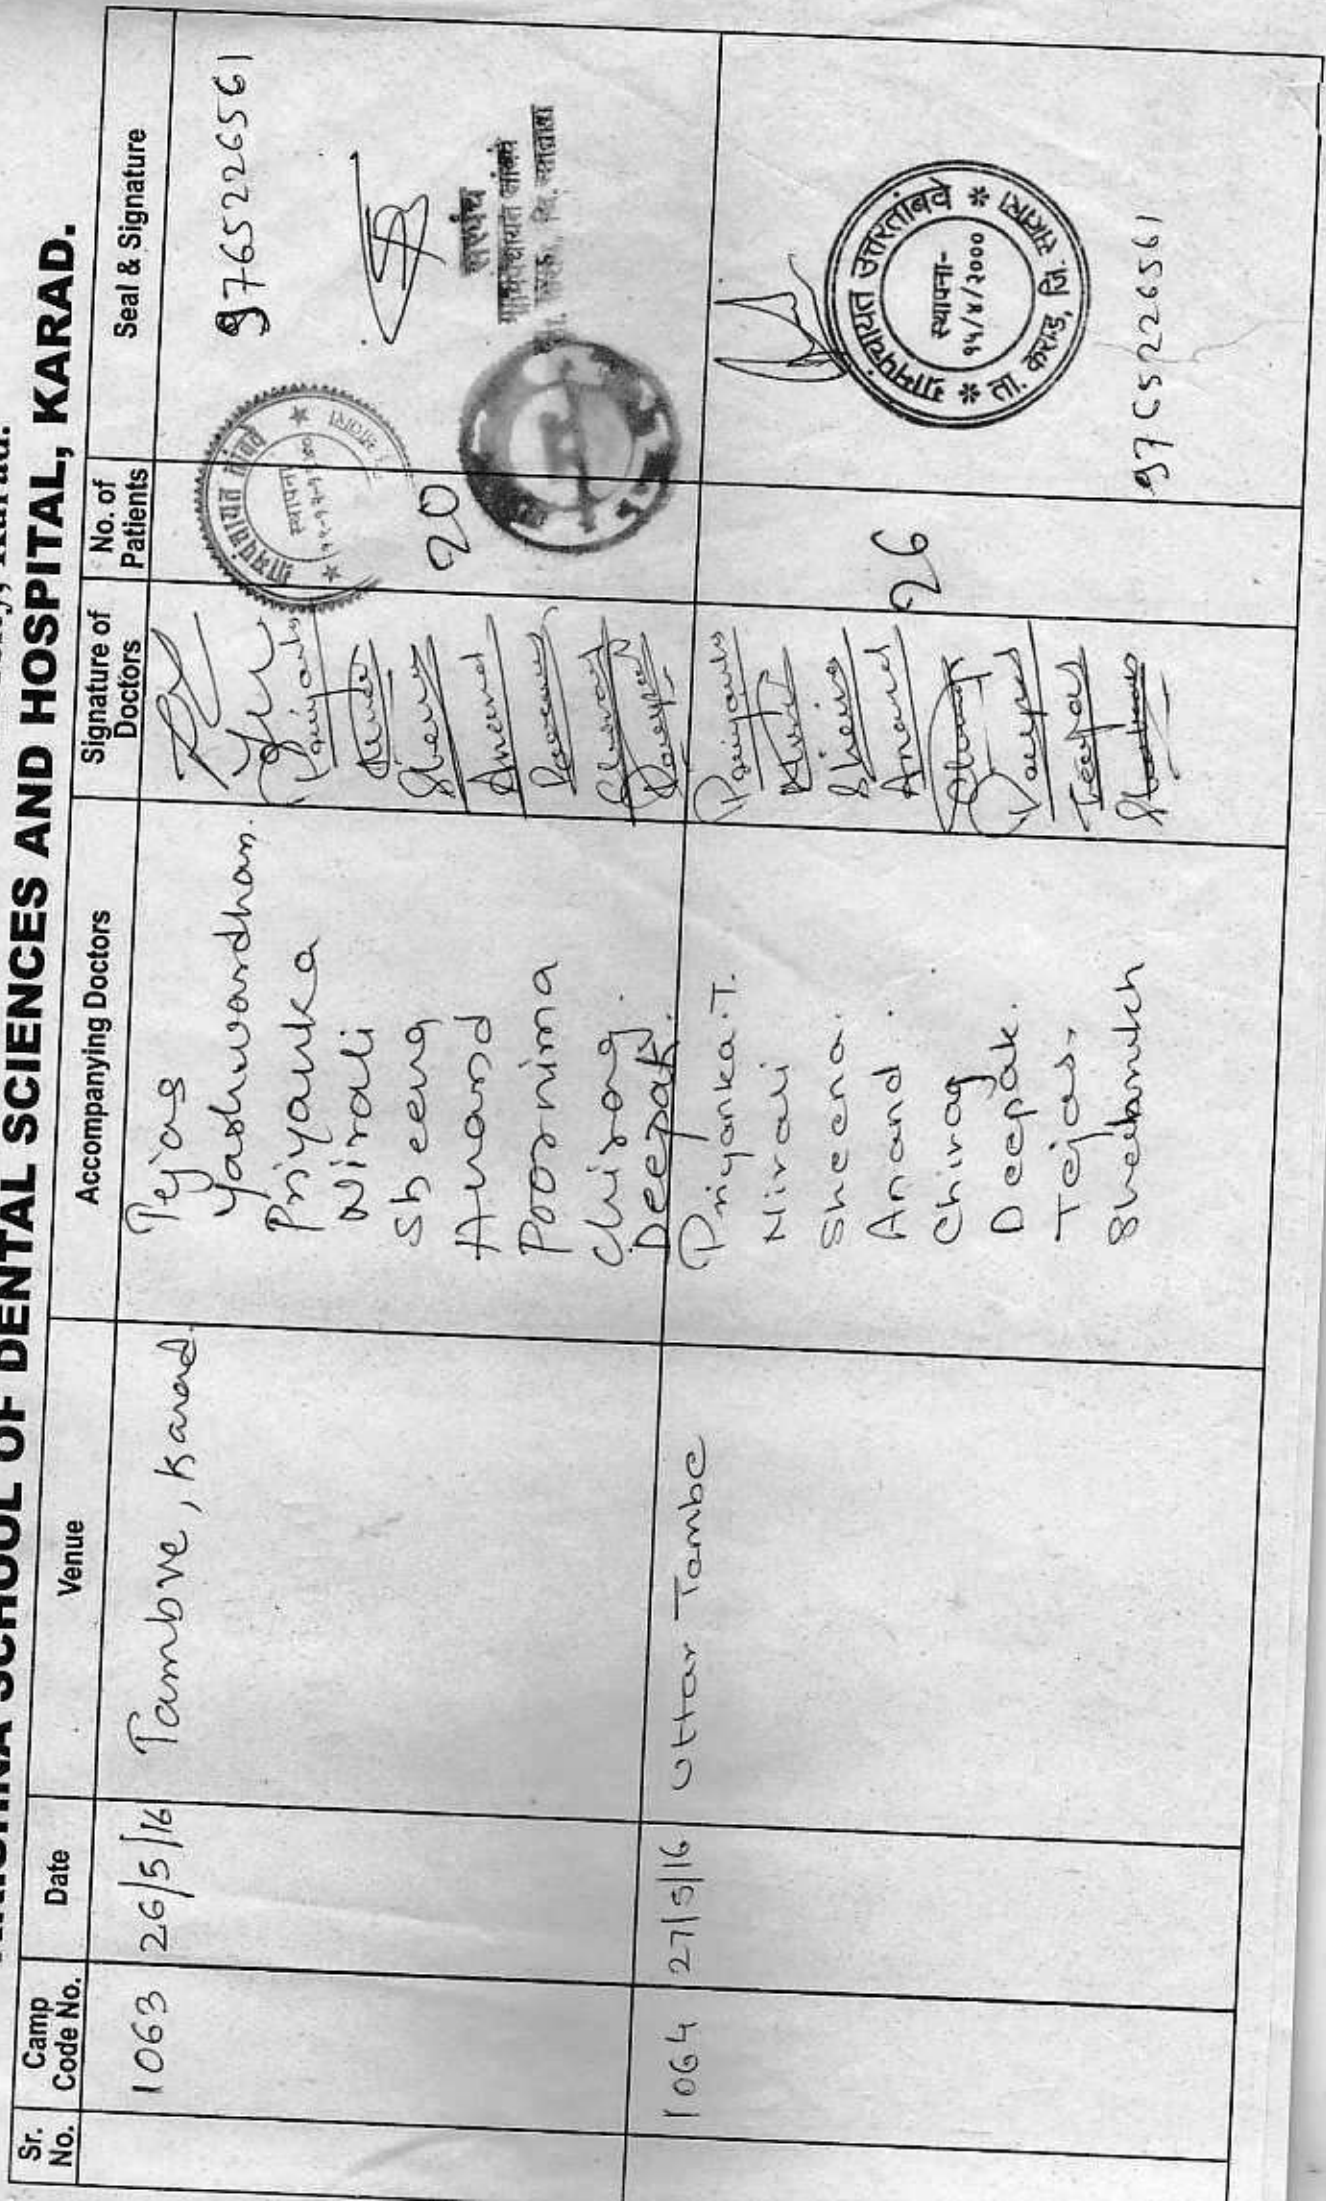 SCHOOL OF DENTAL SCIENCES AND HOSPITAL, KARAD.
Sr. No.
Camp Code No.
Date
Venue
Accompanying Doctors
Signature of Doctors
No. of Patients
Seal & Signature
1063
26/5/16
Tambve, Karad.
Tejas
Yashwardhan.
Priyanka
Nirali
Sheena
Anand
Poornima
Chirag.
Deepak.
Priyanka
Sheena
Anand
20
9765226561
ग्रामपंचायत तांबवे
स्थापना
सरपंच
ग्रामपंचायत तांबवे
1064
27/5/16
Uttar Tambe
Priyanka.T.
Nirali
Sheena.
Anand.
Chirag
Deepak.
Tejas.
Priyanka
Sheena
Anand
Tejas
26
ग्रामपंचायत उत्तरतांबवे
स्थापना-
१५/४/२०००
ता. कराड, जि. सातारा
9765226561